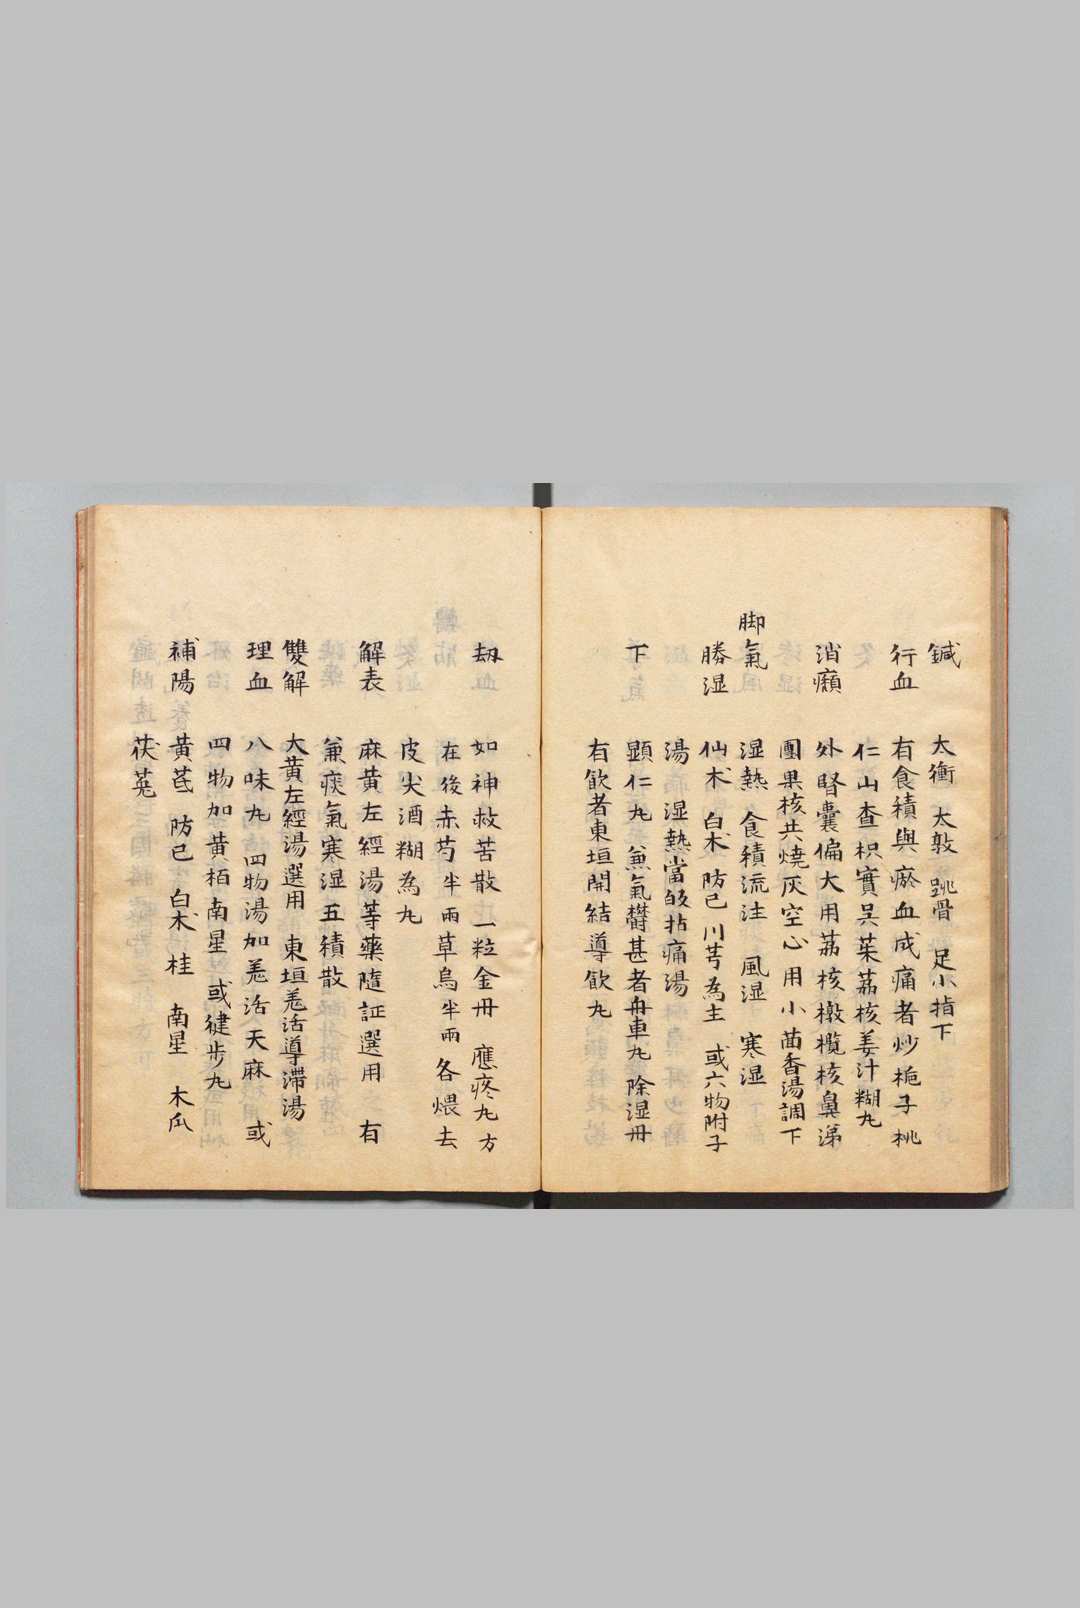 鍼　太衝　太敦　跳骨　足小指下
行血　有食積與瘀血成痛者炒梔子桃
仁山查枳實吴茱茘核姜汁糊丸
消㿗　外腎囊偏大用茘核橄欖核鼻涕
團果核共燒灰空心用小茴香湯調下
脚氣　湿熱　食積流注　風湿　寒湿
勝湿　仙术　白术　防己　川芎為主　或六物附子
湯　湿熱當皈拈痛湯
下　顕仁丸　兼氣欝甚者舟車丸　除湿丹
有飲者東垣開結導飲丸
劫　如神救苦散一粒金丹　應疼丸方
在後赤芍半兩草烏半兩各煨去
皮尖酒糊為丸
解表　麻黄左經湯等藥隨証選用　有
兼痰氣寒湿五積散
雙解　大黄左經湯選用　東垣羗活導滞湯
理血　八味丸　四物湯加羗活天麻　或
四物加黄栢南星　或健歩丸
補陽　黄芪　防己　白术　桂　南星　木瓜
茯苓